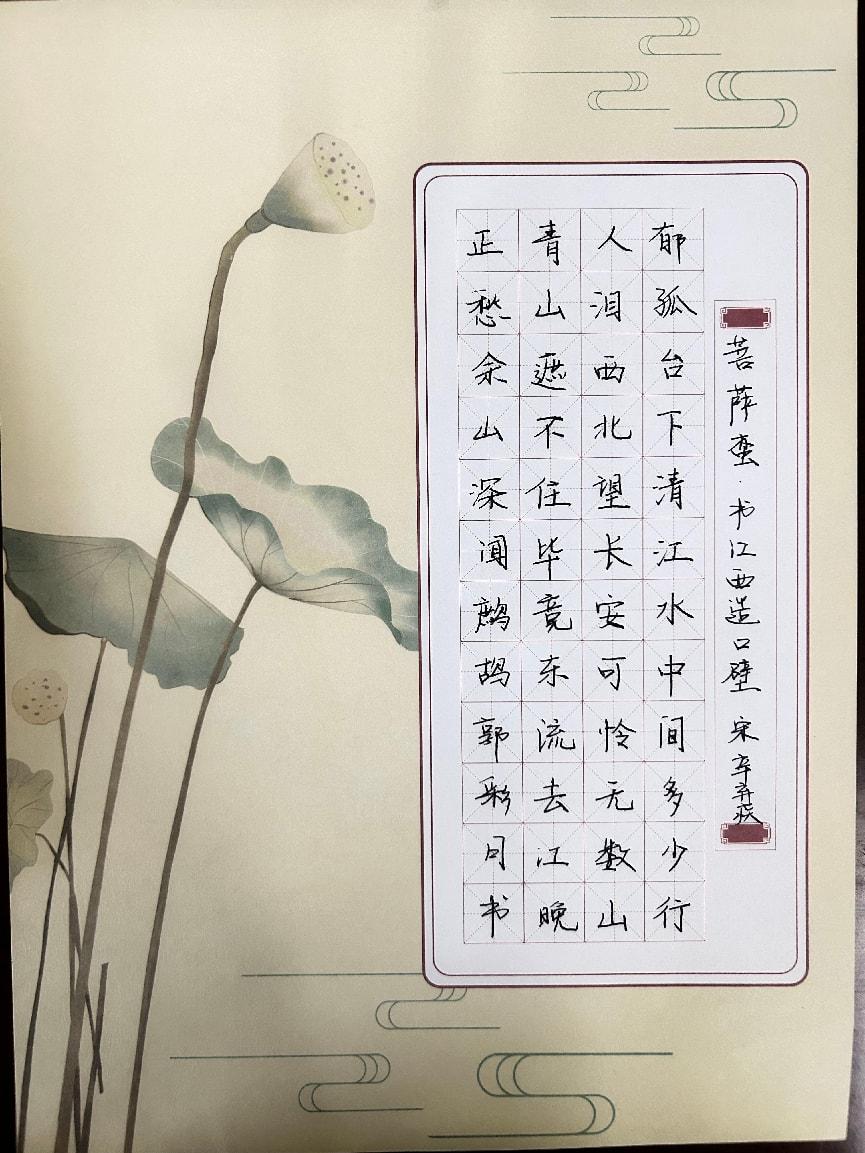 菩萨蛮·书江西造口壁 宋 辛弃疾
郁孤台下清江水中间多少行
人泪西北望长安可怜无数山
青山遮不住毕竟东流去江晚
正愁余山深闻鹧鸪郭彩月书